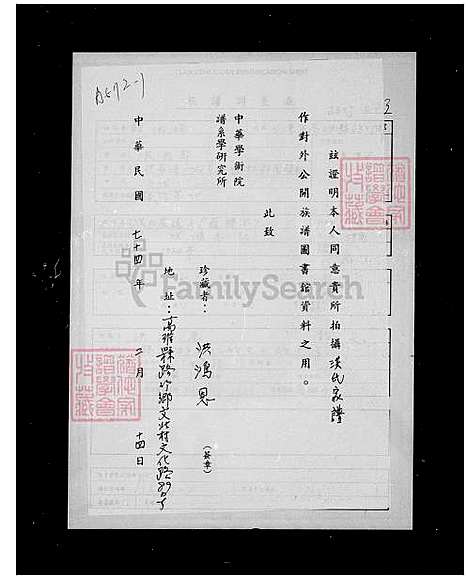 A572-1
茲證明本人同意貴所拍攝洪氏家譜
作對外公開族譜圖書館資料之用。
此致
中華學術院
譜系學研究所
珍藏者：洪鴻恩（簽章）
地址：高雄縣路竹鄉文北村文化路89号
中華民國七十四年二月十四日
FamilySearch